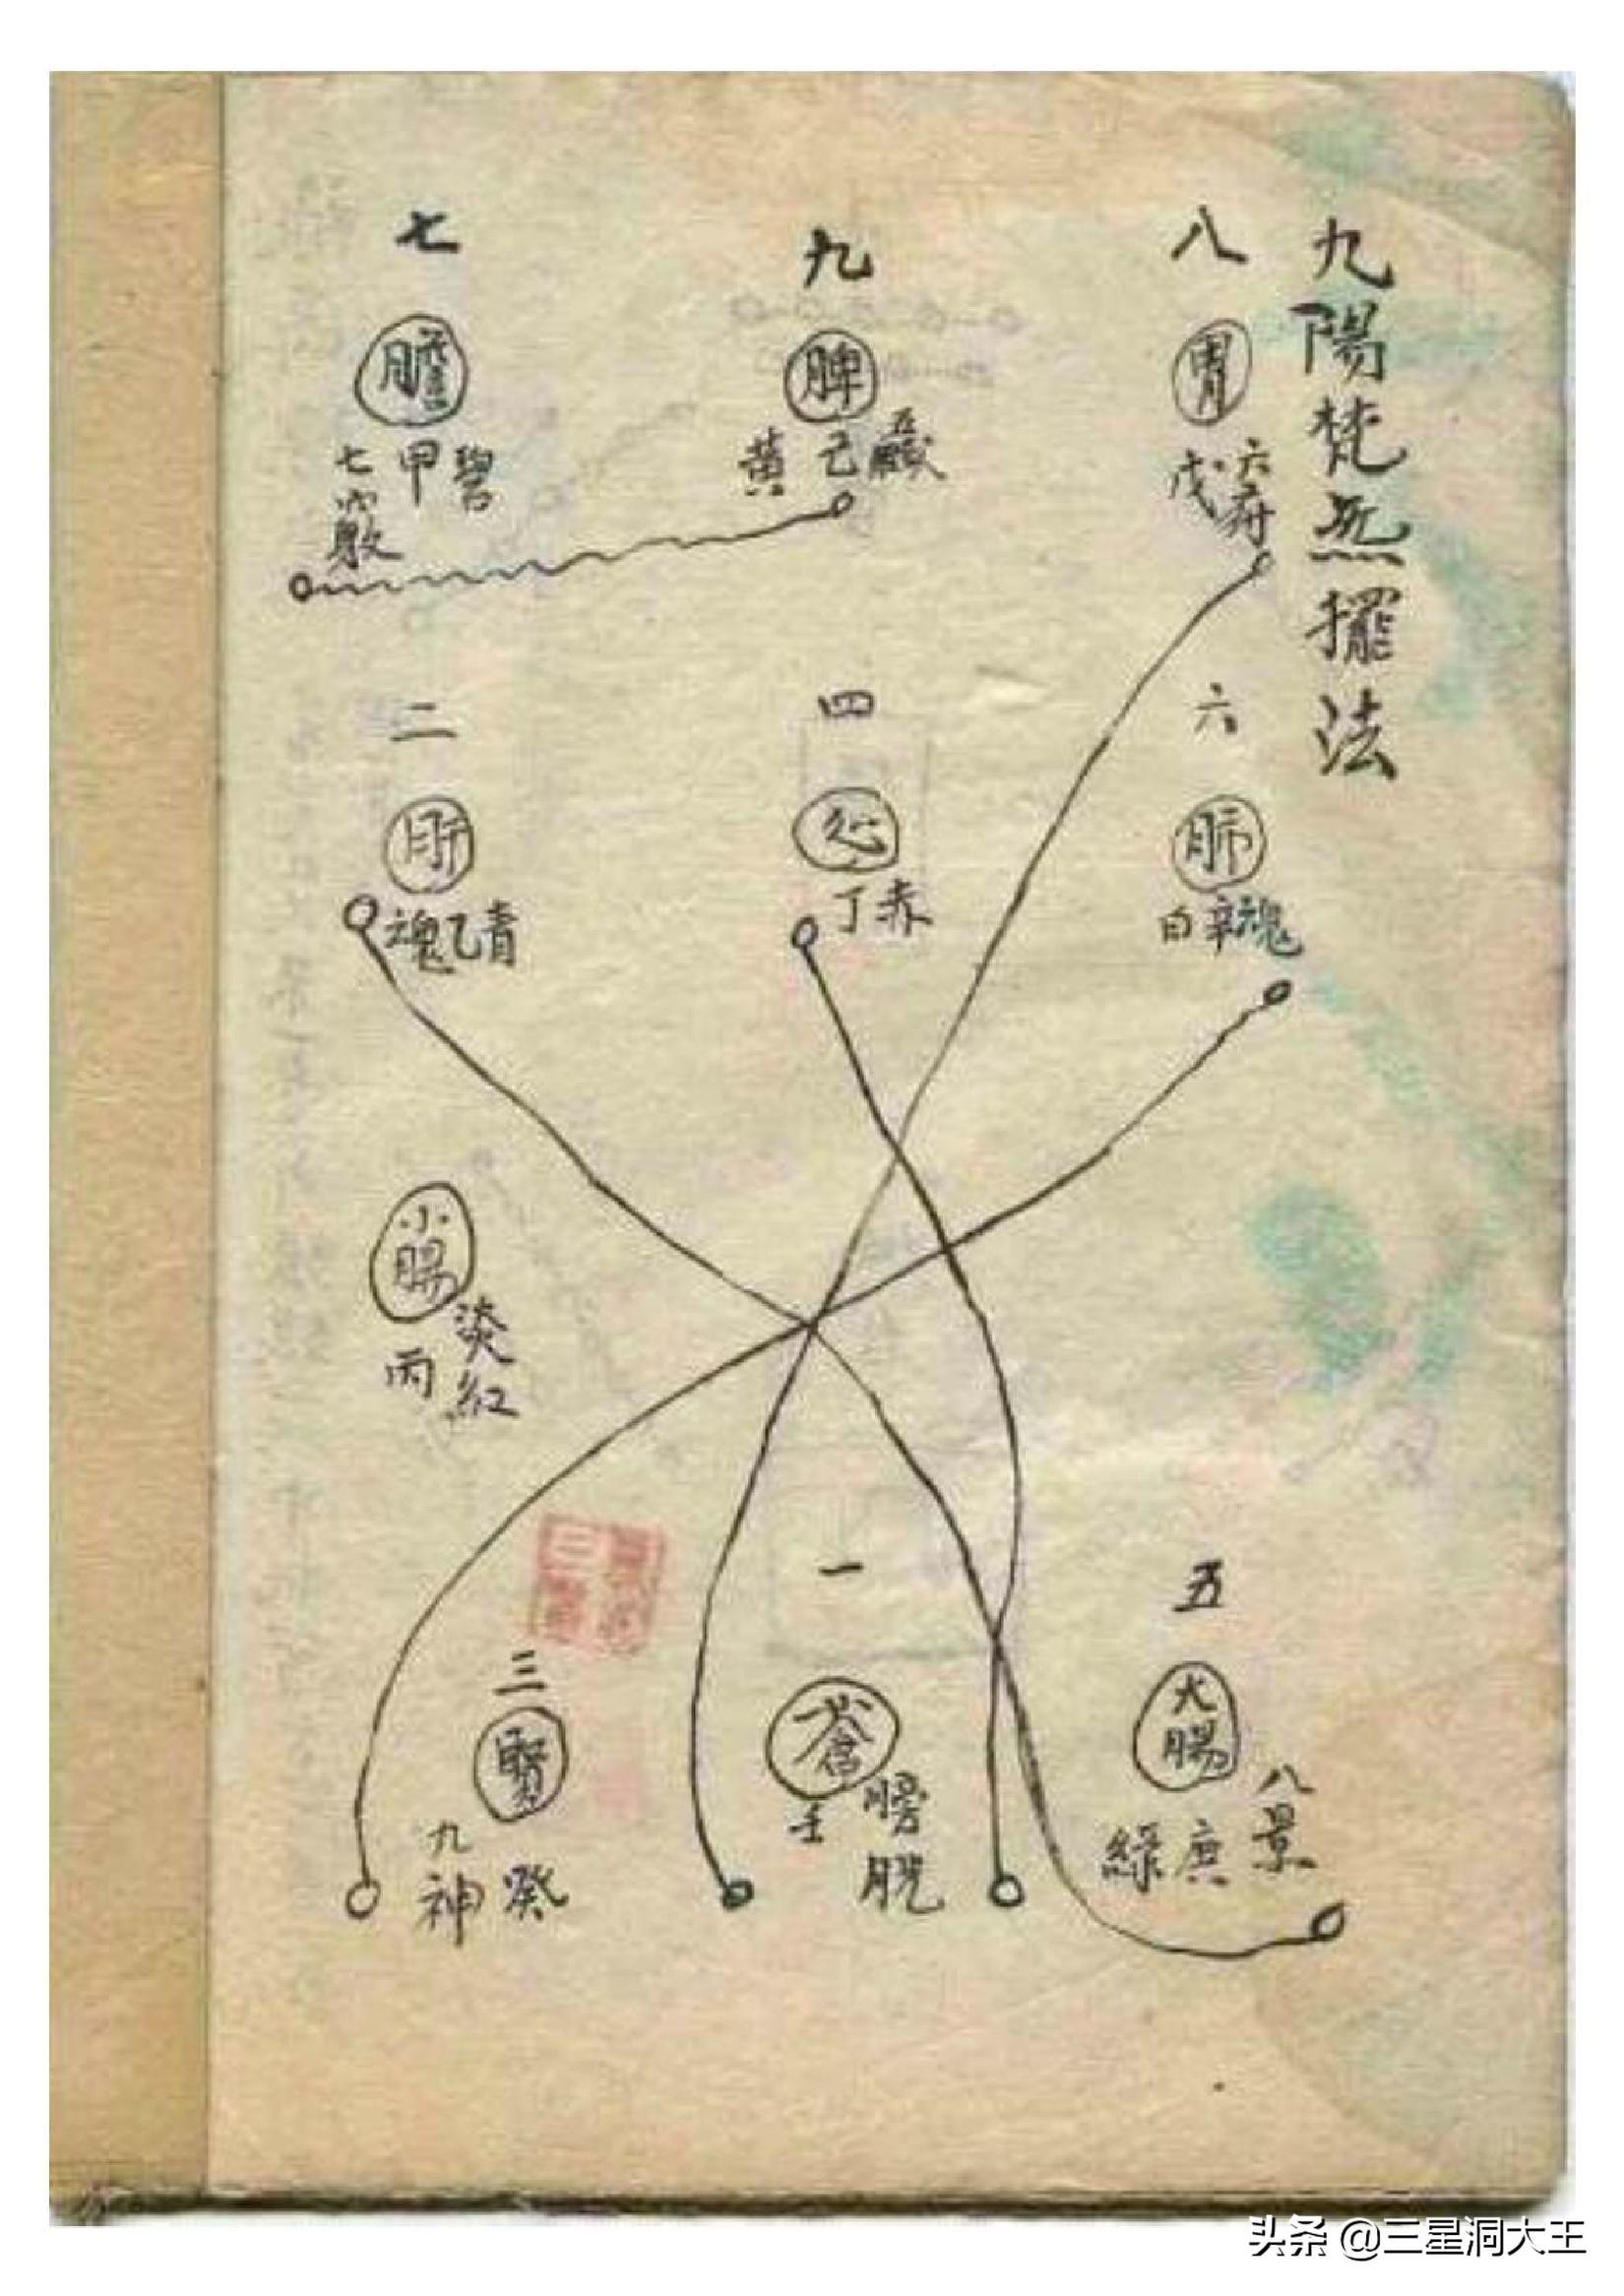 九陽梵炁擺法
八
胃
六府
戊
九
脾
五臟
己
黄
七
膽
碧
甲
七竅
六
肺
魂
辛
白
四
心
赤
丁
二
肝
青
乙
魂
小腸
淡紅
丙
五
大腸
八景
庚
綠
一
膀胱
壬
三
腎
癸
九神
头条 @三星洞大王